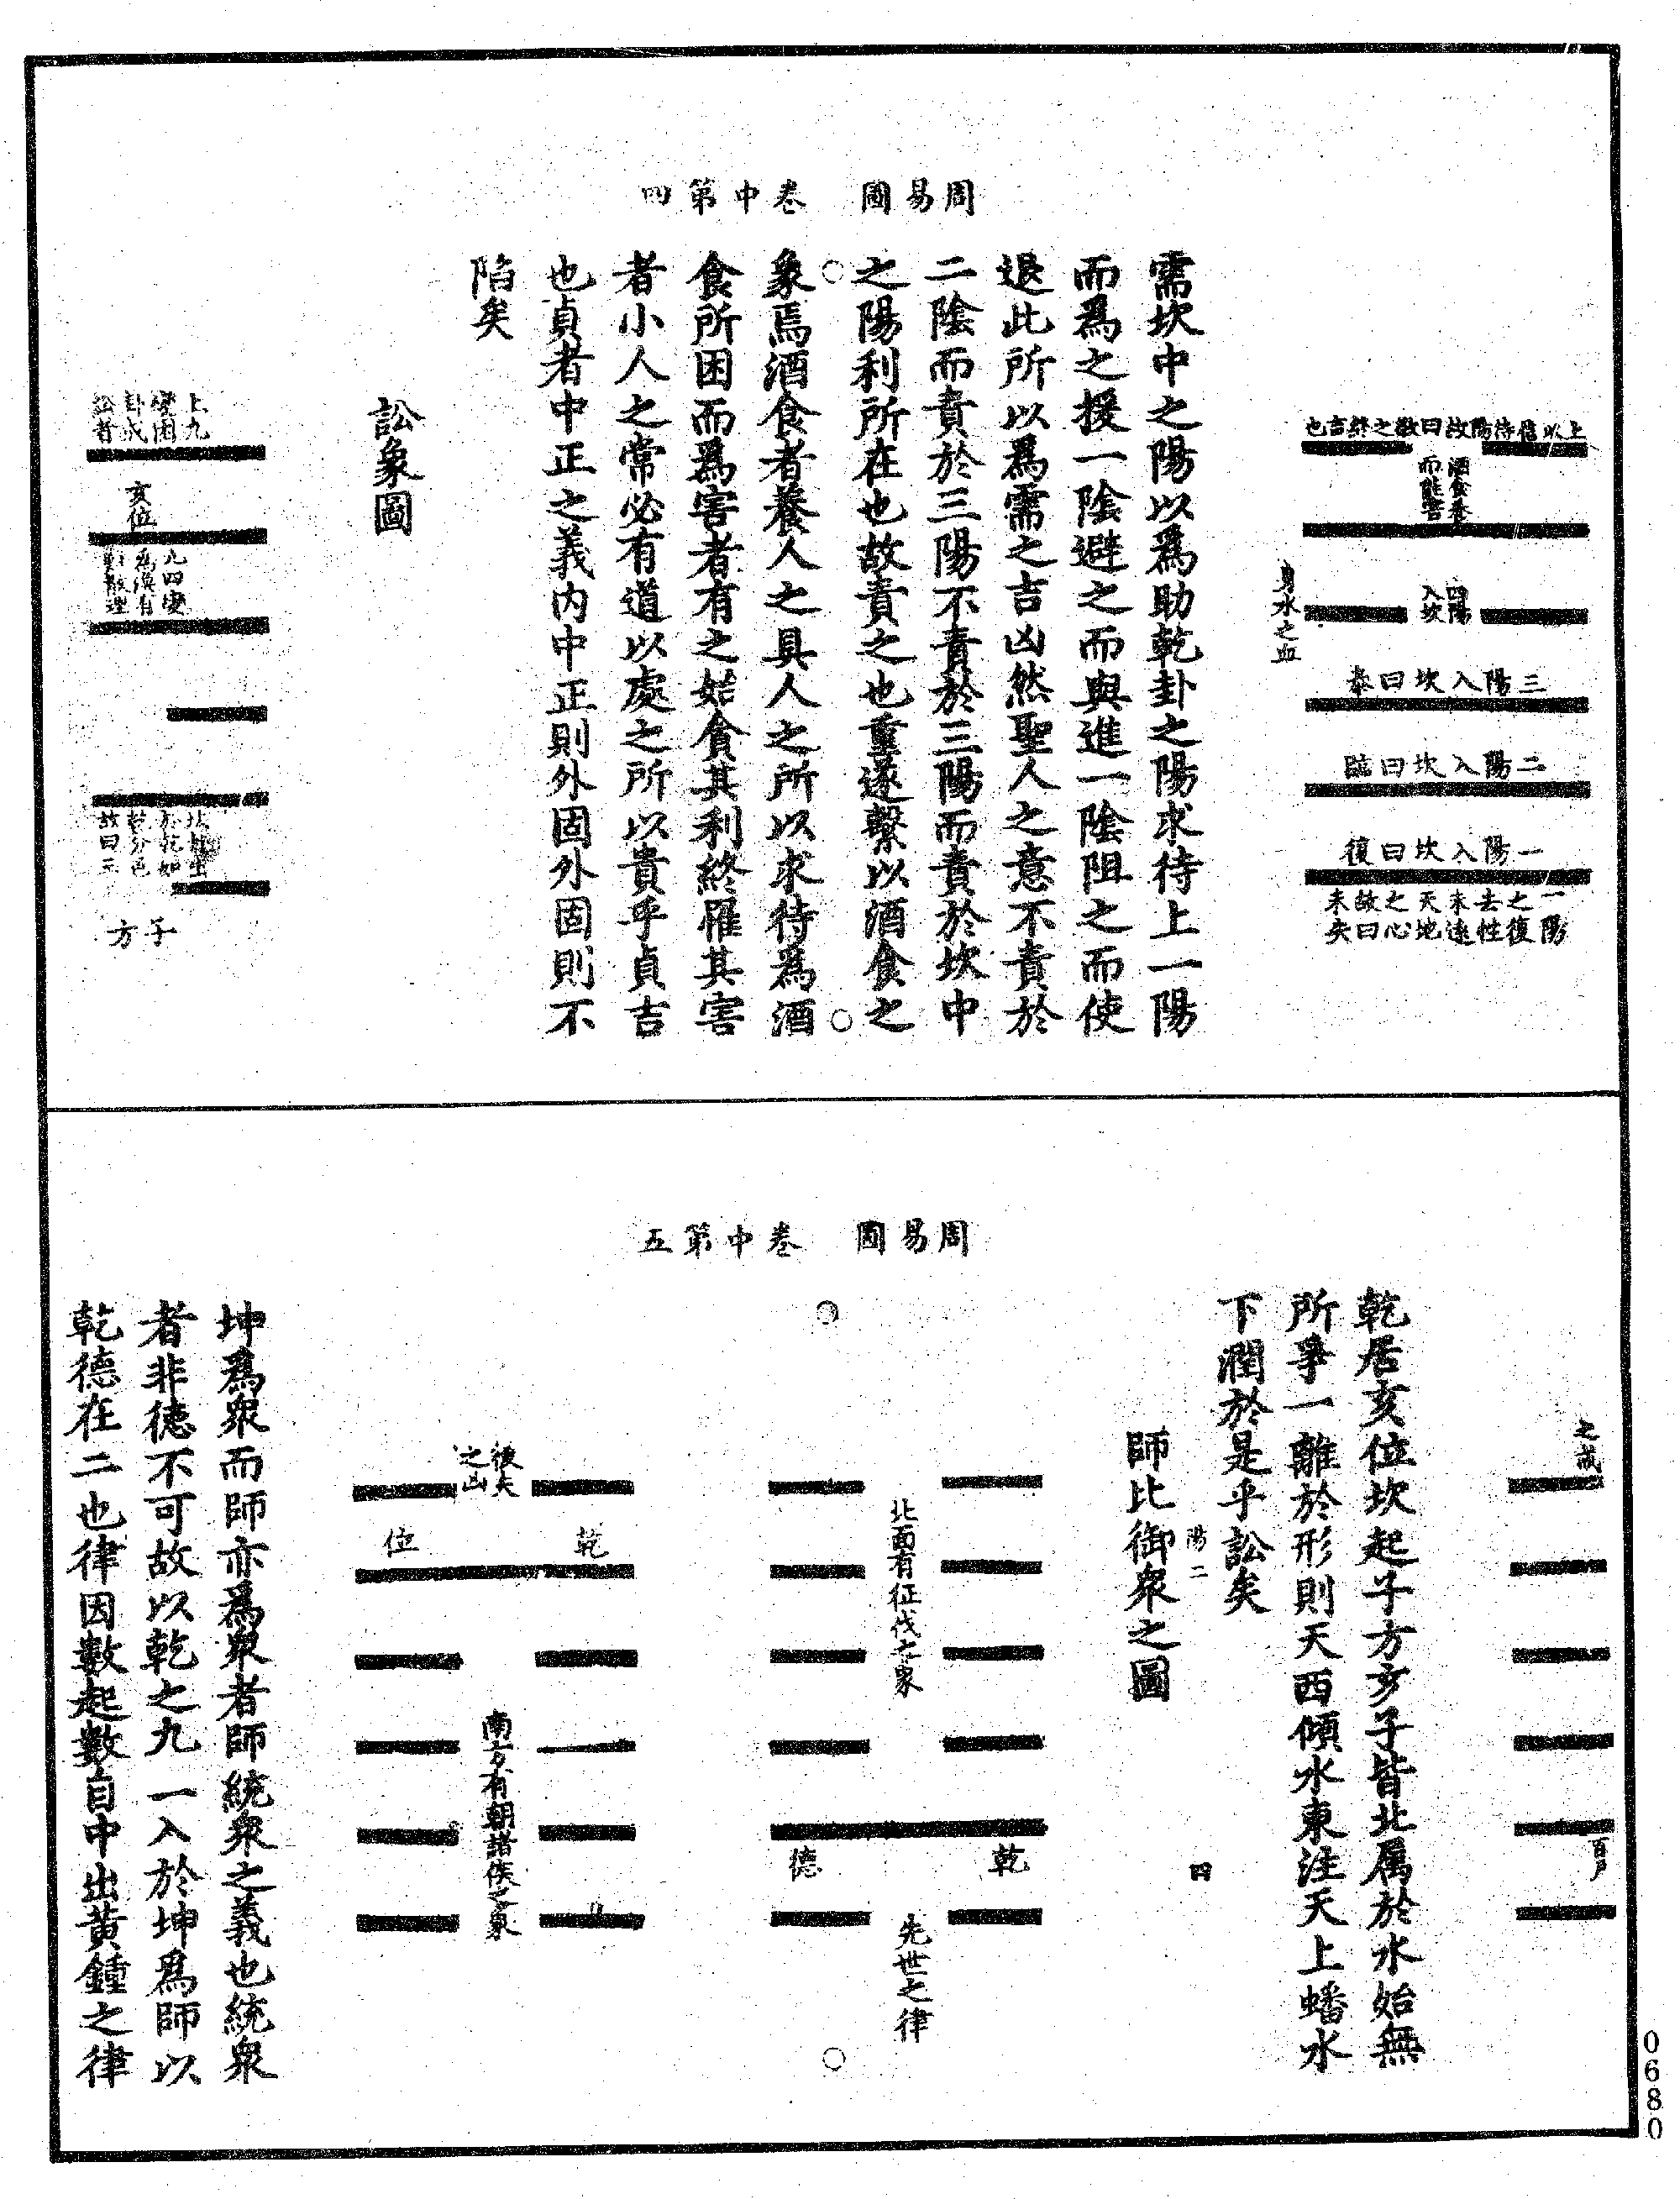 周易圖　卷中第四
上以信待陽故曰敬之終吉也
酒食養
而能害
四陽
入坎
身水之血
三陽入坎曰泰
二陽入坎曰臨
一陽入坎曰復
一陽之復去性未遠天地之心故曰未矣
需坎中之陽以爲助乾卦之陽求待上一陽
而爲之援一陰避之而與進一陰阻之而使
退此所以爲需之吉凶然聖人之意不責於
二陰而責於三陽不責於三陽而責於坎中
之陽利所在也故責之也重遂繫以酒食之
象焉酒食者養人之具人之所以求待爲酒
食所困而爲害者有之始貪其利終罹其害
者小人之常必有道以處之所以貴乎貞吉
也貞者中正之義內中正則外固外固則不
陷矣
訟象圖
上九
變困
卦成
訟者
亥位
九四變
爲渙有
散理
子方
周易圖　卷中第五
之誡
百戶
乾居亥位坎起子方亥子皆北属於水始無
所爭一離於形則天西傾水東注天上蟠水
下潤於是乎訟矣
陽二
四
師比御衆之圖
北面有征伐之象
乾德
先世之律
後夫
之凶
乾位
南方有朝諸侯之象
坤爲衆而師亦爲衆者師統衆之義也統衆
者非德不可故以乾之九一入於坤爲師以
乾德在二也律因數起數自中出黃鍾之律
0680